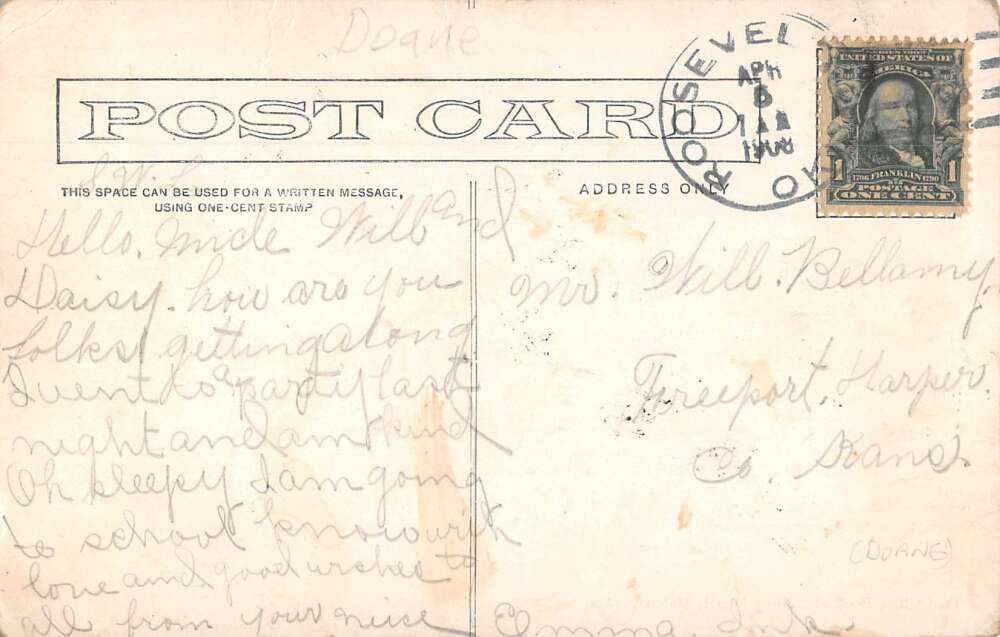 Doane
POST CARD
THIS SPACE CAN BE USED FOR A WRITTEN MESSAGE,
USING ONE-CENT STAMP
Hello. Uncle Will and
Daisy. how are you
folks getting along
I went to a party last
night and am kind
Oh sleepy I am going
to school know with
love and good wishes to
all from your niece
Emma.
ADDRESS ONLY
ROOSEVEL
APR
1 AM
OK
UNITED STATES OF
AMERICA
1 1706 FRANKLIN 1790 1
POSTAGE
ONE CENT
Mr. Will. Bellamy
Freeport, Harper
Co. Kans.
(DOANE)